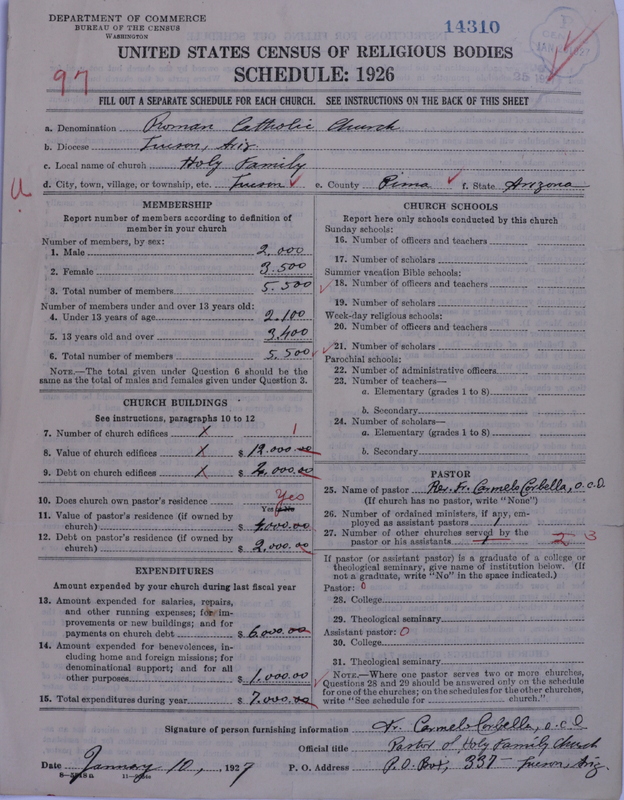 DEPARTMENT OF COMMERCE
BUREAU OF THE CENSUS
WASHINGTON
14310
UNITED STATES CENSUS OF RELIGIOUS BODIES
SCHEDULE: 1926
97
FILL OUT A SEPARATE SCHEDULE FOR EACH CHURCH. SEE INSTRUCTIONS ON THE BACK OF THIS SHEET
a. Denomination Roman Catholic Church
b. Diocese Tucson, Ariz.
c. Local name of church Holy Family
d. City, town, village, or township, etc. Tucson e. County Pima f. State Arizona
MEMBERSHIP
Report number of members according to definition of
member in your church
Number of members, by sex:
1. Male 2.000
2. Female 3.500
3. Total number of members 5.500
Number of members under and over 13 years old:
4. Under 13 years of age 2.100
5. 13 years old and over 3.400
6. Total number of members 5.500
NOTE.—The total given under Question 6 should be the
same as the total of males and females given under Question 3.
CHURCH BUILDINGS
See instructions, paragraphs 10 to 12
7. Number of church edifices X 1
8. Value of church edifices X $ 12.000.00
9. Debt on church edifices X $ 2,000.00
10. Does church own pastor's residence Yes
Yes
11. Value of pastor's residence (if owned by
church) $ 4,000.00
12. Debt on pastor's residence (if owned by
church) $ 2.000.00
EXPENDITURES
Amount expended by your church during last fiscal year
13. Amount expended for salaries, repairs,
and other running expenses; for im-
provements or new buildings; and for
payments on church debt $ 6.000.00
14. Amount expended for benevolences, in-
cluding home and foreign missions; for
denominational support; and for all
other purposes $ 1.000.00
15. Total expenditures during year $ 7.000.00
CHURCH SCHOOLS
Report here only schools conducted by this church
Sunday schools:
16. Number of officers and teachers
17. Number of scholars
Summer vacation Bible schools:
18. Number of officers and teachers
19. Number of scholars
Week-day religious schools:
20. Number of officers and teachers
21. Number of scholars
Parochial schools:
22. Number of administrative officers
23. Number of teachers—
a. Elementary (grades 1 to 8)
b. Secondary
24. Number of scholars—
a. Elementary (grades 1 to 8)
b. Secondary
PASTOR
25. Name of pastor Rev. Fr. Carmelo Corbella, O.C.D.
(If church has no pastor, write "None")
26. Number of ordained ministers, if any, em-
ployed as assistant pastors 1
27. Number of other churches served by the
pastor or his assistants 1 2 3
If pastor (or assistant pastor) is a graduate of a college or
theological seminary, give name of institution below. (If
not a graduate, write "No" in the space indicated.)
Pastor: 0
28. College
29. Theological seminary
Assistant pastor: 0
30. College
31. Theological seminary
NOTE.—Where one pastor serves two or more churches,
Questions 28 and 29 should be answered only on the schedule
for one of the churches; on the schedules for the other churches,
write "See schedule for church."
Signature of person furnishing information Fr. Carmelo Corbella, O.C.D
Official title Pastor of Holy Family Church
Date January 10, 1927 P. O. Address P.O. Box, 337 - Tucson, Ariz.